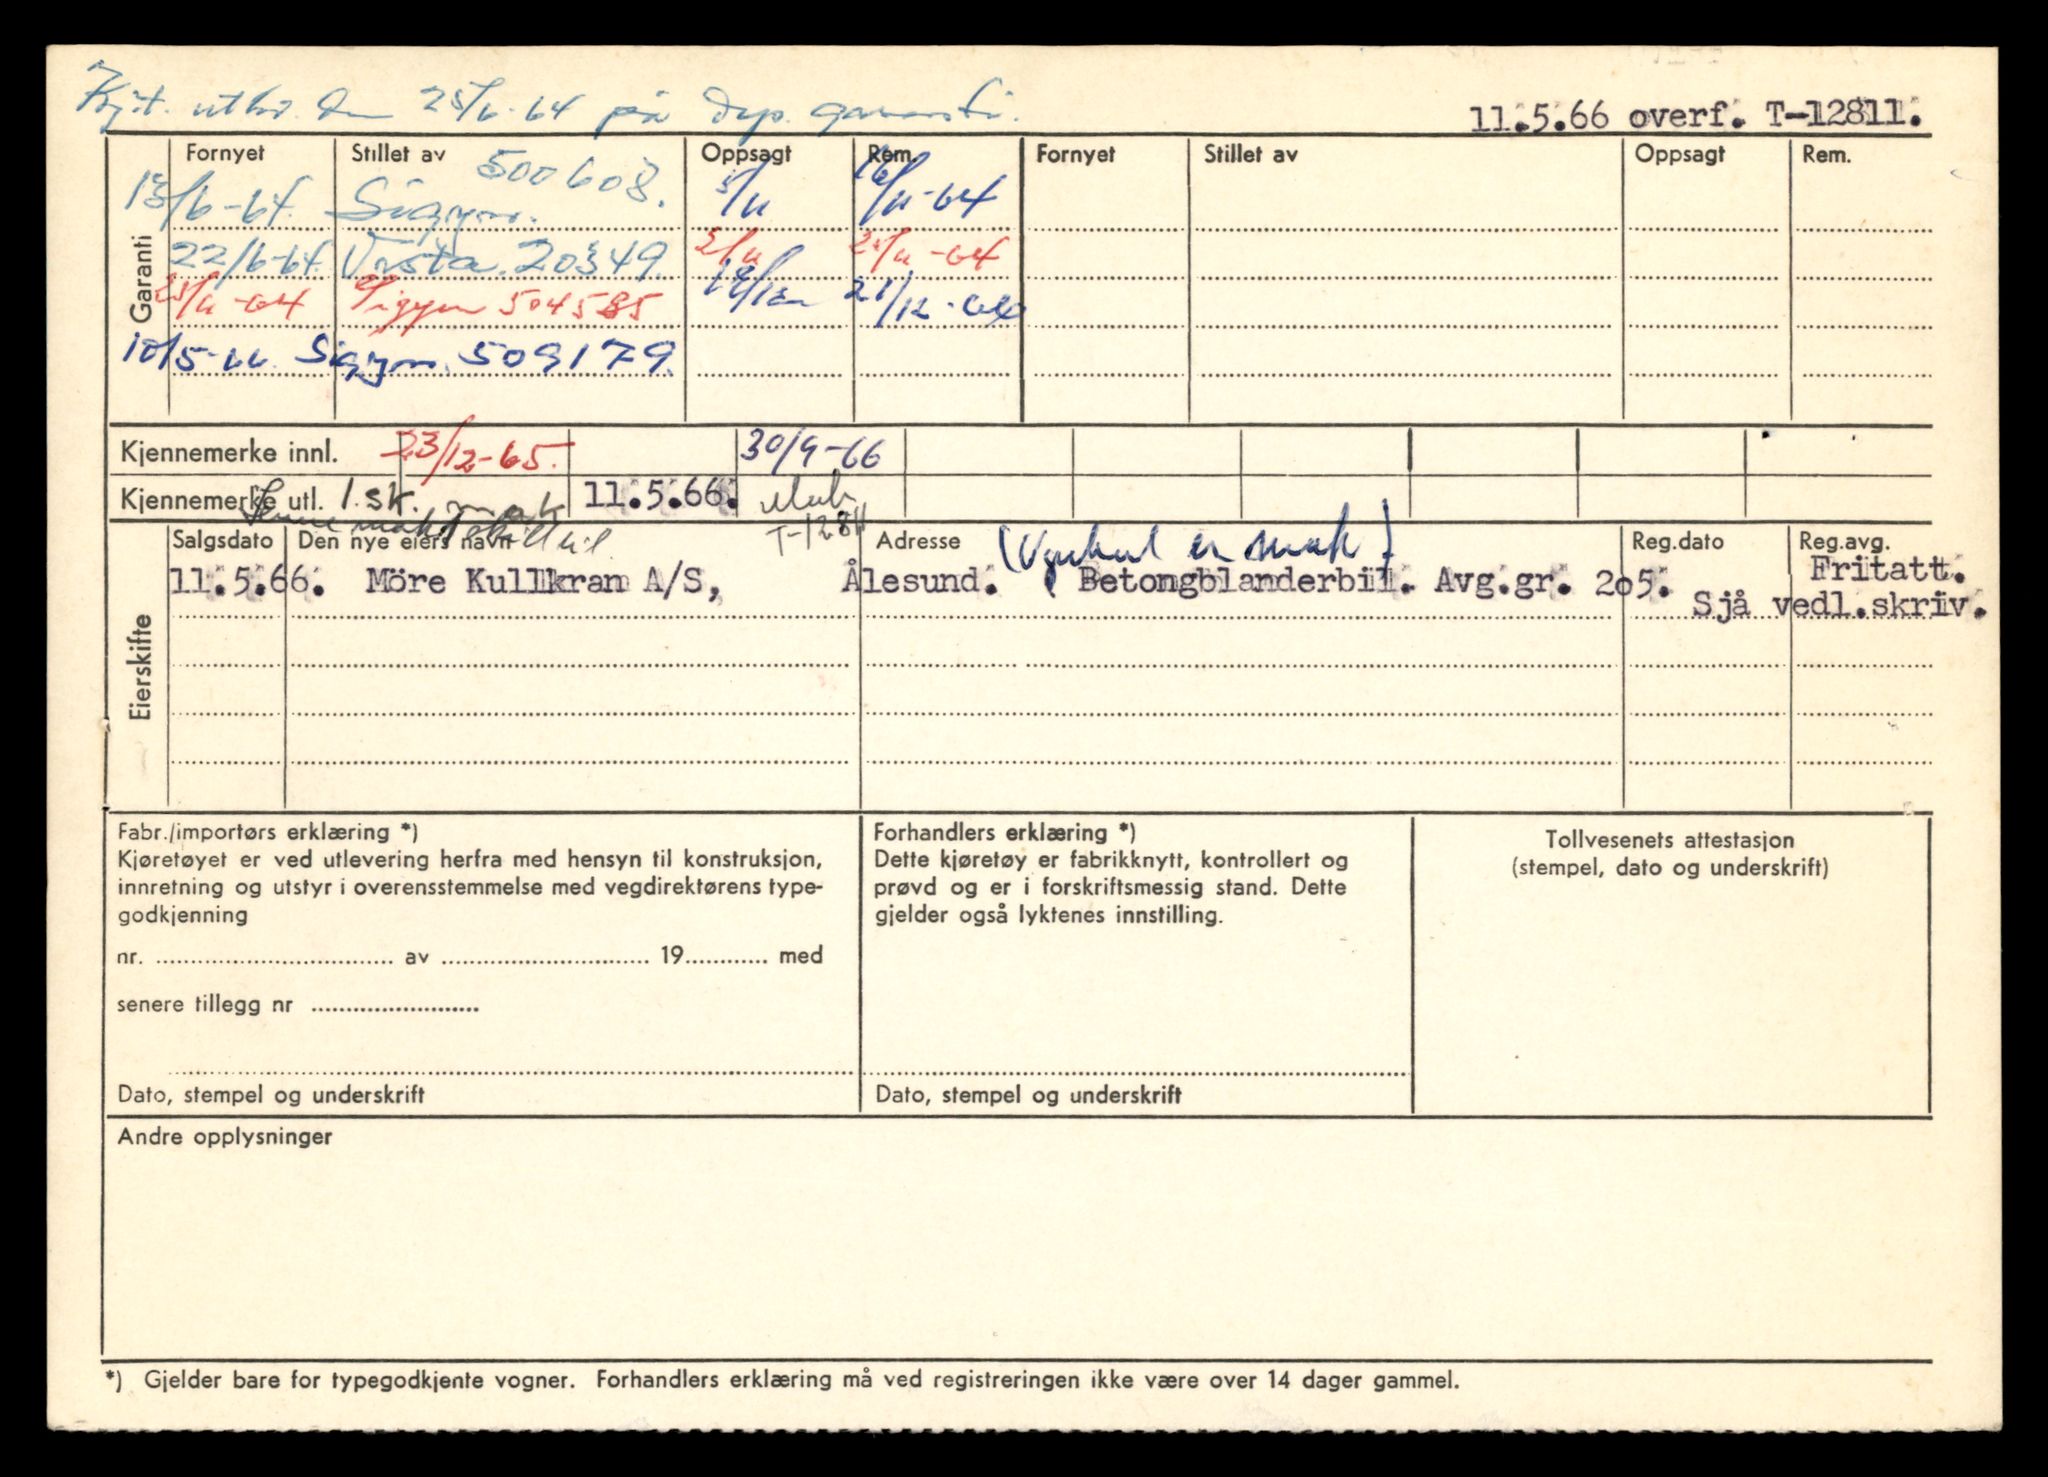 25/6-64 på dep. garanti.
11.5.66 overf. T-12811.
Garanti
Fornyet Stillet av Oppsagt Rem. Fornyet Stillet av Oppsagt Rem.
/6-64. Sigyn. 500608. 5/11 16/11-64
22/6-64. Vesta. 20349. 2/11 /11-64
/11-64 Sigyn 504585 /12 21/12-
10/5-66. Sigyn. 509179.
Kjennemerke innl. 23/12-65. 30/9-66
Kjennemerke utl. 1.sk. mak 11.5.66. Mak
T-12811
Eierskifte
Salgsdato Den nye eiers navn Adresse Reg.dato Reg.avg.
er mak)
11.5.66. Möre Kullkran A/S, Ålesund. Betongblanderbil. Avg.gr. 205. Fritatt.
Sjå vedl.skriv.
Fabr./importørs erklæring *)
Kjøretøyet er ved utlevering herfra med hensyn til konstruksjon,
innretning og utstyr i overensstemmelse med vegdirektørens type-
godkjenning
nr. av 19 med
senere tillegg nr
Dato, stempel og underskrift
Forhandlers erklæring *)
Dette kjøretøy er fabrikknytt, kontrollert og
prøvd og er i forskriftsmessig stand. Dette
gjelder også lyktenes innstilling.
Dato, stempel og underskrift
Tollvesenets attestasjon
(stempel, dato og underskrift)
Andre opplysninger
*) Gjelder bare for typegodkjente vogner. Forhandlers erklæring må ved registreringen ikke være over 14 dager gammel.